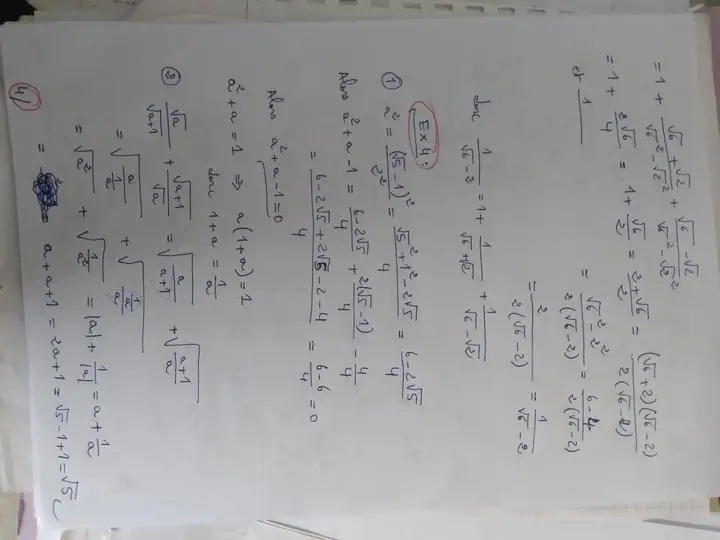 = 1 + (√6 + √2)/(√6² - √2²) + (√6 - √2)/(√6² - √2²)
= 1 + 2√6/4 = 1 + √6/2 = (2 + √6)/2 = (√6 + 2)(√6 - 2)/(2(√6 - 2))
= (√6² - 2²)/(2(√6 - 2)) = (6 - 4)/(2(√6 - 2))
= 2/(2(√6 - 2)) = 1/(√6 - 2)
donc 1/(√6 - 2) = 1 + 1/(√6 + √2) + 1/(√6 - √2)
Ex 4 :
① a² = (√5 - 1)²/2² = (√5² + 1² - 2√5)/4 = (6 - 2√5)/4
Alors a² + a - 1 = (6 - 2√5)/4 + 2(√5 - 1)/4 - 4/4
= (6 - 2√5 + 2√5 - 2 - 4)/4 = (6 - 6)/4 = 0
Alors a² + a - 1 = 0
a² + a = 1 ⇒ a(1 + a) = 1
donc 1 + a = 1/a
③ √a/√(a+1) + √(a+1)/√a = √(a/(a+1)) + √((a+1)/a)
= √(a/(1/a)) + √((1/a)/a)
= √(a²) + √(1/a²) = |a| + 1/|a| = a + 1/a
= a + a + 1 = 2a + 1 = √5 - 1 + 1 = √5
4/